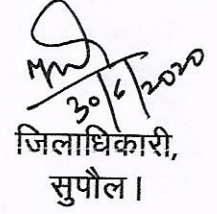 30/6/2020
जिलाधिकारी,
सुपौल।